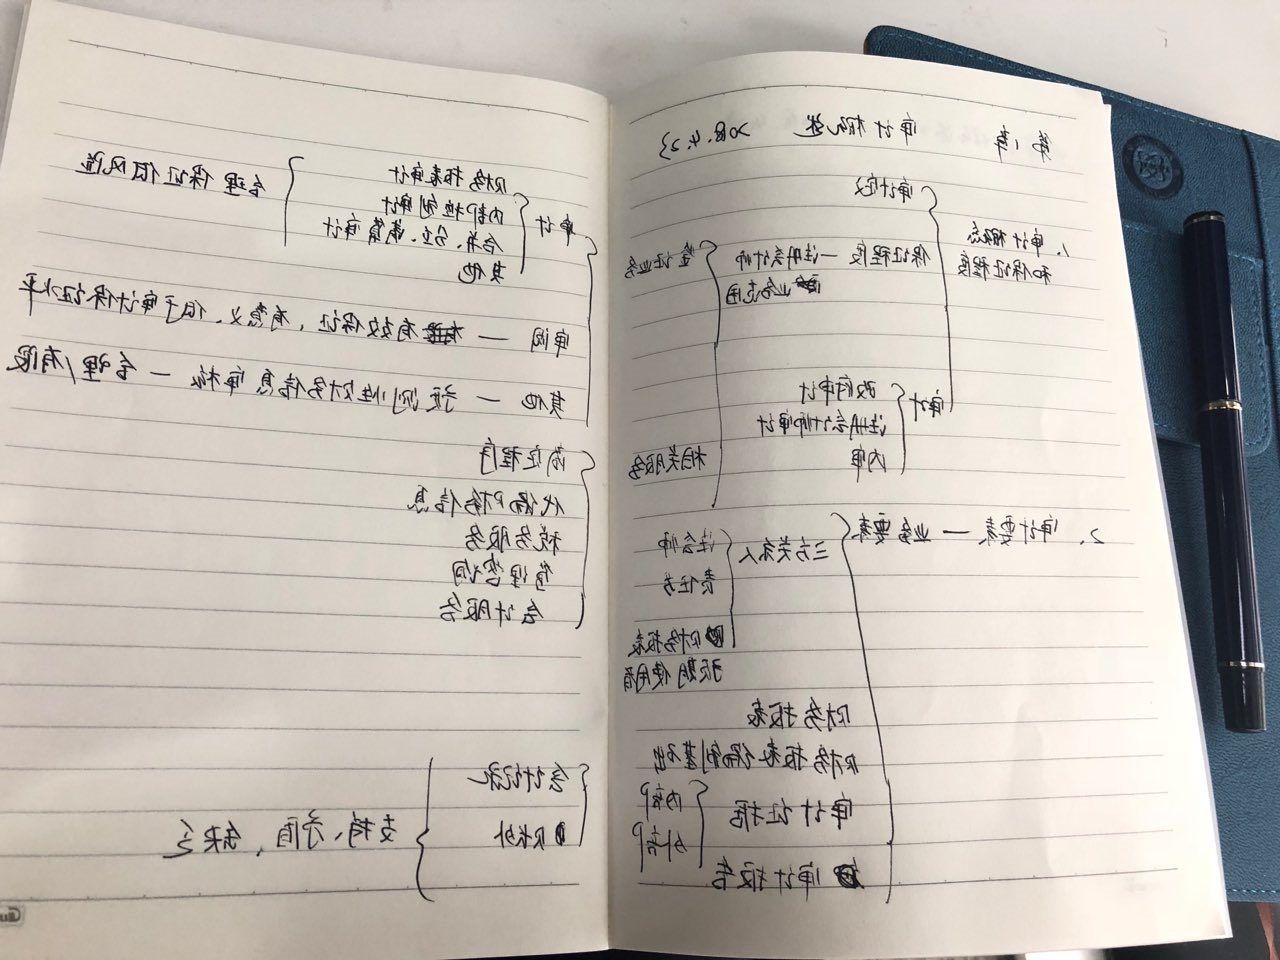 第1章 审计概述 2018.4.23
1、审计概念和保证程度
审计定义
保证程度—注册会计师业务范围
鉴证业务
相关服务
审计
政府审计
注册会计师审计
内审
2、审计要素—业务要素
三方关系人
注会师
责任方
财务报表
预期使用者
财务报表
财务报表编制基础
审计证据
内部
外部
审计报告
审计
财务报表审计
内部控制审计
合并、分立、清算审计
其他
合理保证低风险
审阅—有效保证，有意义、低于审计保证水平
其他—预测性财务信息审核—合理/有限
商定程序
代编财务信息
税务服务
管理咨询
会计服务
会计记录
以外
支持、矛盾、缺乏